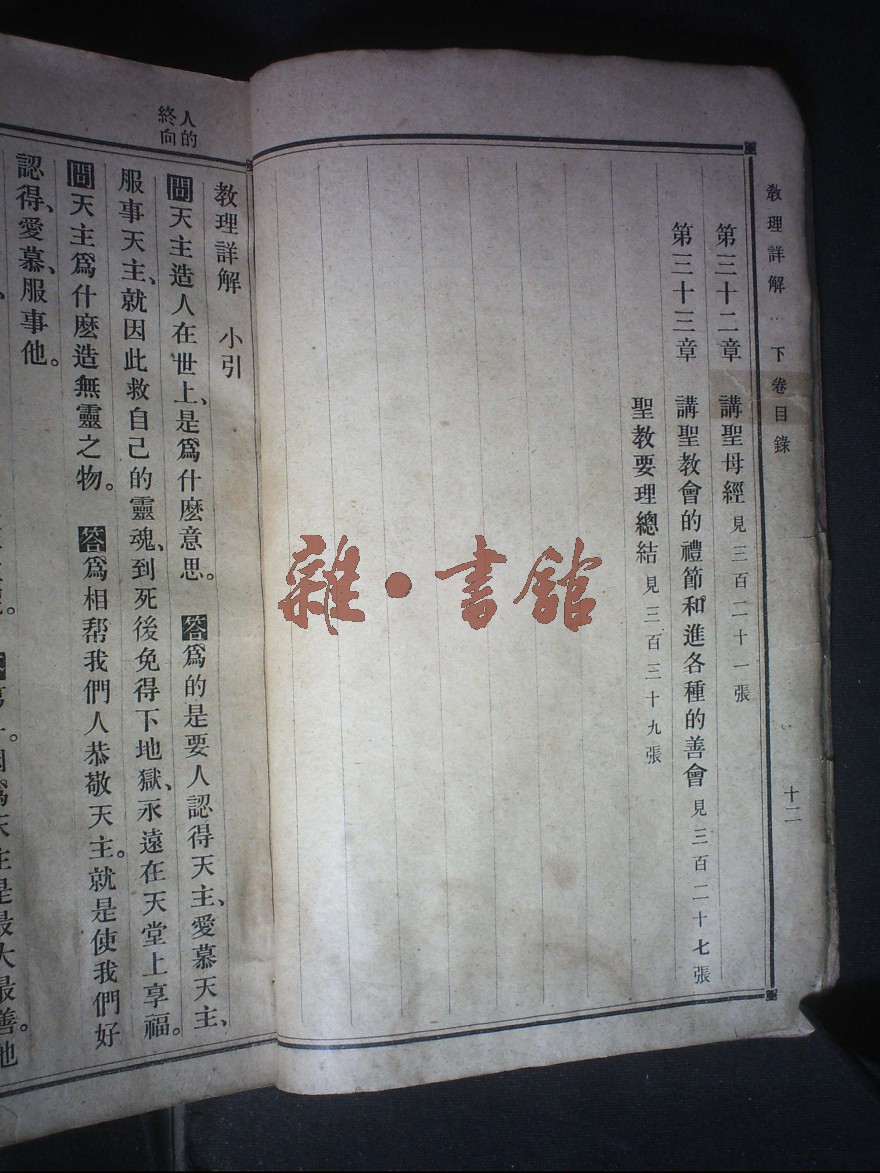 教理詳解 : 下卷目錄
十二
第三十二章 講聖母經 見三百二十一張
第三十三章 講聖教會的禮節和進各種的善會 見三百二十七張
聖教要理總結 見三百三十九張
雜·書館
人的
終向
教理詳解 小引
問天主造人在世上、是爲什麽意思。 答爲的是要人認得天主、愛慕天主、
服事天主、就因此救自己的靈魂、到死後免得下地獄、永遠在天堂上享福。
問天主爲什麽造無靈之物。 答爲相帮我們人恭敬天主。就是使我們好
認得、愛慕、服事他。
因爲天主是最大最善。他